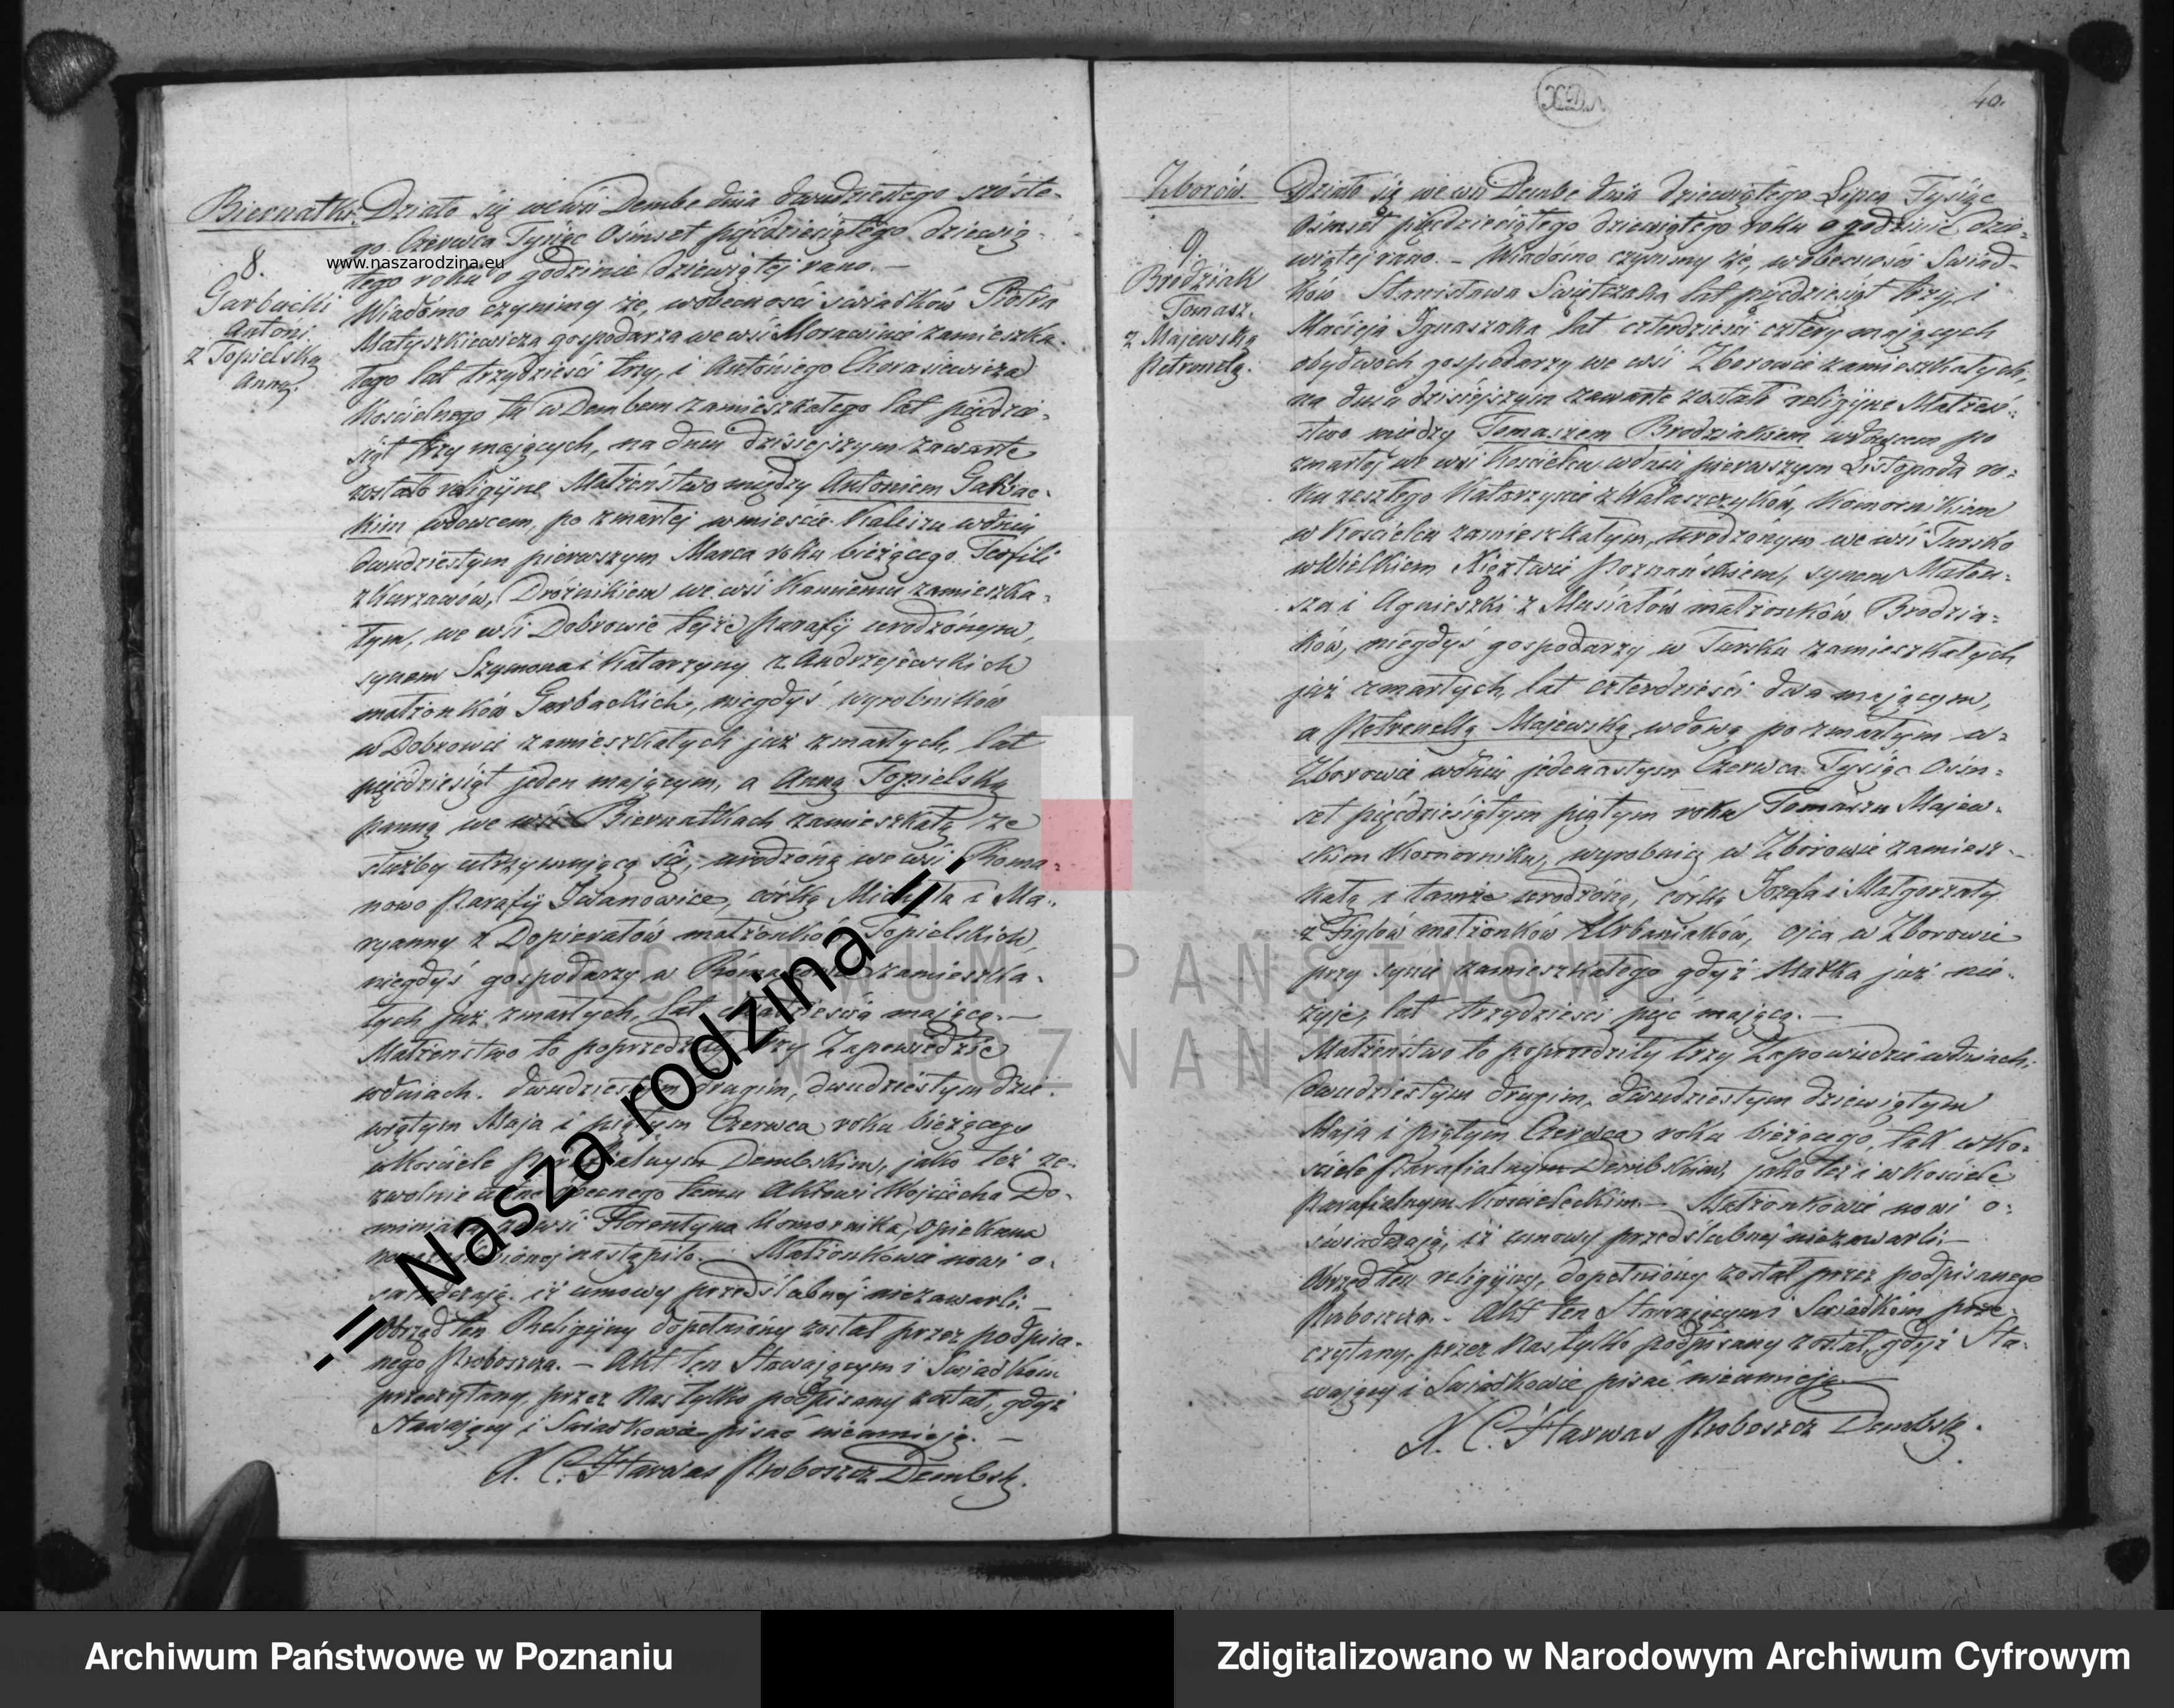 Biernatki.
8.
Garbacki
Antoni
z Topielską
Anną.
Działo się we wsi Dembe dnia dwudziestego szóste-
go Czerwca Tysiąc Ośmset pięćdziesiątego dziewią-
tego roku o godzinie dziewiątej rano. —
www.naszarodzina.eu
Wiadomo czynimy że, w obecności świadków Piotra
Matyszkiewicza gospodarza we wsi Morawinie zamieszka-
łego lat trzydzieści trzy, i Antoniego Chorasiewicza
Kościelnego tu w Dembem zamieszkałego lat pięćdzie-
siąt trzy mających, na dniu dzisiejszym zawarte
zostało religijne Małżeństwo między Antoniem Garbac-
kim wdowcem, po zmarłej w mieście Kaliszu w dniu
dwudziestym pierwszym Marca roku bieżącego Teofili
z Kurzawów, Dróżnikiem we wsi Kamieniu zamieszka-
łym, we wsi Dobrowie tejże Parafii urodzonym,
synem Szymona i Katarzyny z Andrzejewskich
małżonków Garbackich, niegdyś wyrobników
w Dobrowie zamieszkałych już zmarłych, lat
pięćdziesiąt jeden mającym, a Anną Topielską
panną we wsi Biernatkach zamieszkałą, ze
służby utrzymującą się, urodzoną we wsi Roma-
nowo Parafii Iwanowice, córką Michała i Ma-
ryanny z Dopierałów małżonków Topielskich,
niegdyś gospodarzy w Romanowie zamieszka-
łych już zmarłych, lat mającą. —
Małżeństwo to poprzedziły trzy Zapowiedzie
w dniach. dwudziestym drugim, dwudziestym dzie-
wiątym Maja i piątym Czerwca roku bieżącego
w Kościele Parafialnym Dembskim, jako też ze-
zwolnie ustne obecnego temu Aktowi Wojciecha Do-
ze wsi Florentyna Komornika, opiekuna
nastąpiło. — Małżonkowie nowi o-
świadczają, iż umowy przedślubnéj niezawarli. —
Obrzęd ten Religijny dopełniony został przez podpisa-
nego Proboszcza. — Akt ten Stawającym i Świadkom
przeczytany, przez Nas tylko podpisany został, gdyż
Stawający i Świadkowie pisać nieumieją. —
X. C. Harwas Proboszcz Dembsk.
-= Nasza rodzina =-
40.
Zborów.
9.
Brodziak
Tomasz.
z Majewską
Petronelą.
Działo się we wsi Dembe dnia dziewiątego Lipca Tysiąc
Ośmset pięćdziesiątego dziewiątego roku o godzinie dzie-
wiątej rano. — Wiadomo czynimy że, w obecności Świad-
ków Stanisława Świątczaka lat pięćdziesiąt trzy, i
Macieja Ignaszaka lat czterdzieści cztery mających
obydwóch gospodarzy we wsi Zborowie zamieszkałych,
na dniu dzisiejszym zawarte zostało religijne Małżeń-
stwo między Tomaszem Brodziakiem wdowcem po
zmarłej we wsi Kościelcu w dniu pierwszym Listopada ro-
ku zeszłego Katarzynie z Walaszczyków, Komornikiem
w Kościelcu zamieszkałym, urodzonym we wsi Tursko
w Wielkiem Xięztwie Poznańskiem, synem Mateu-
sza i Agnieszki z Musiałów małżonków Brodzia-
ków, niegdyś gospodarzy w Tursku zamieszkałych
już zmarłych, lat czterdzieści dwa mającym,
a Petronellą Majewską wdową po zmarłym w
Zborowie w dniu jedenastym Czerwca Tysiąc Ośm-
set pięćdziesiątym piątym roku Tomaszu Majew-
skim Komorniku, wyrobnicą w Zborowie zamiesz-
kałą i tamże urodzoną, córką Józefa i Małgorzaty
z Figlów małżonków Urbaniaków, ojca w Zborowie
przy synie zamieszkałego gdyż Matka już nie
żyje, lat trzydzieści pięć mającą. —
Małżeństwo to poprzedziły trzy Zapowiedzie w dniach,
dwudziestym drugim, dwudziestym dziewiątym
Maja i piątym Czerwca roku bieżącego, tak w Ko-
ściele Parafialnym Dembskim, jako też i w Kościele
Parafialnym Kościeleckim. — Małżonkowie nowi o-
świadczają, iż umowy przedślubnéj niezawarli. —
Obrzęd ten religijny, dopełniony został przez podpisanego
Proboszcza. — Akt ten Stawającym i Świadkom prze-
czytany, przez Nas tylko podpisany został, gdyż Sta-
wający i Świadkowie pisać nieumieją. —
X. C. Harwas Proboszcz Dembsk.
ARCHIWUM PAŃSTWOWE
W POZNANIU
Archiwum Państwowe w Poznaniu
Zdigitalizowano w Narodowym Archiwum Cyfrowym